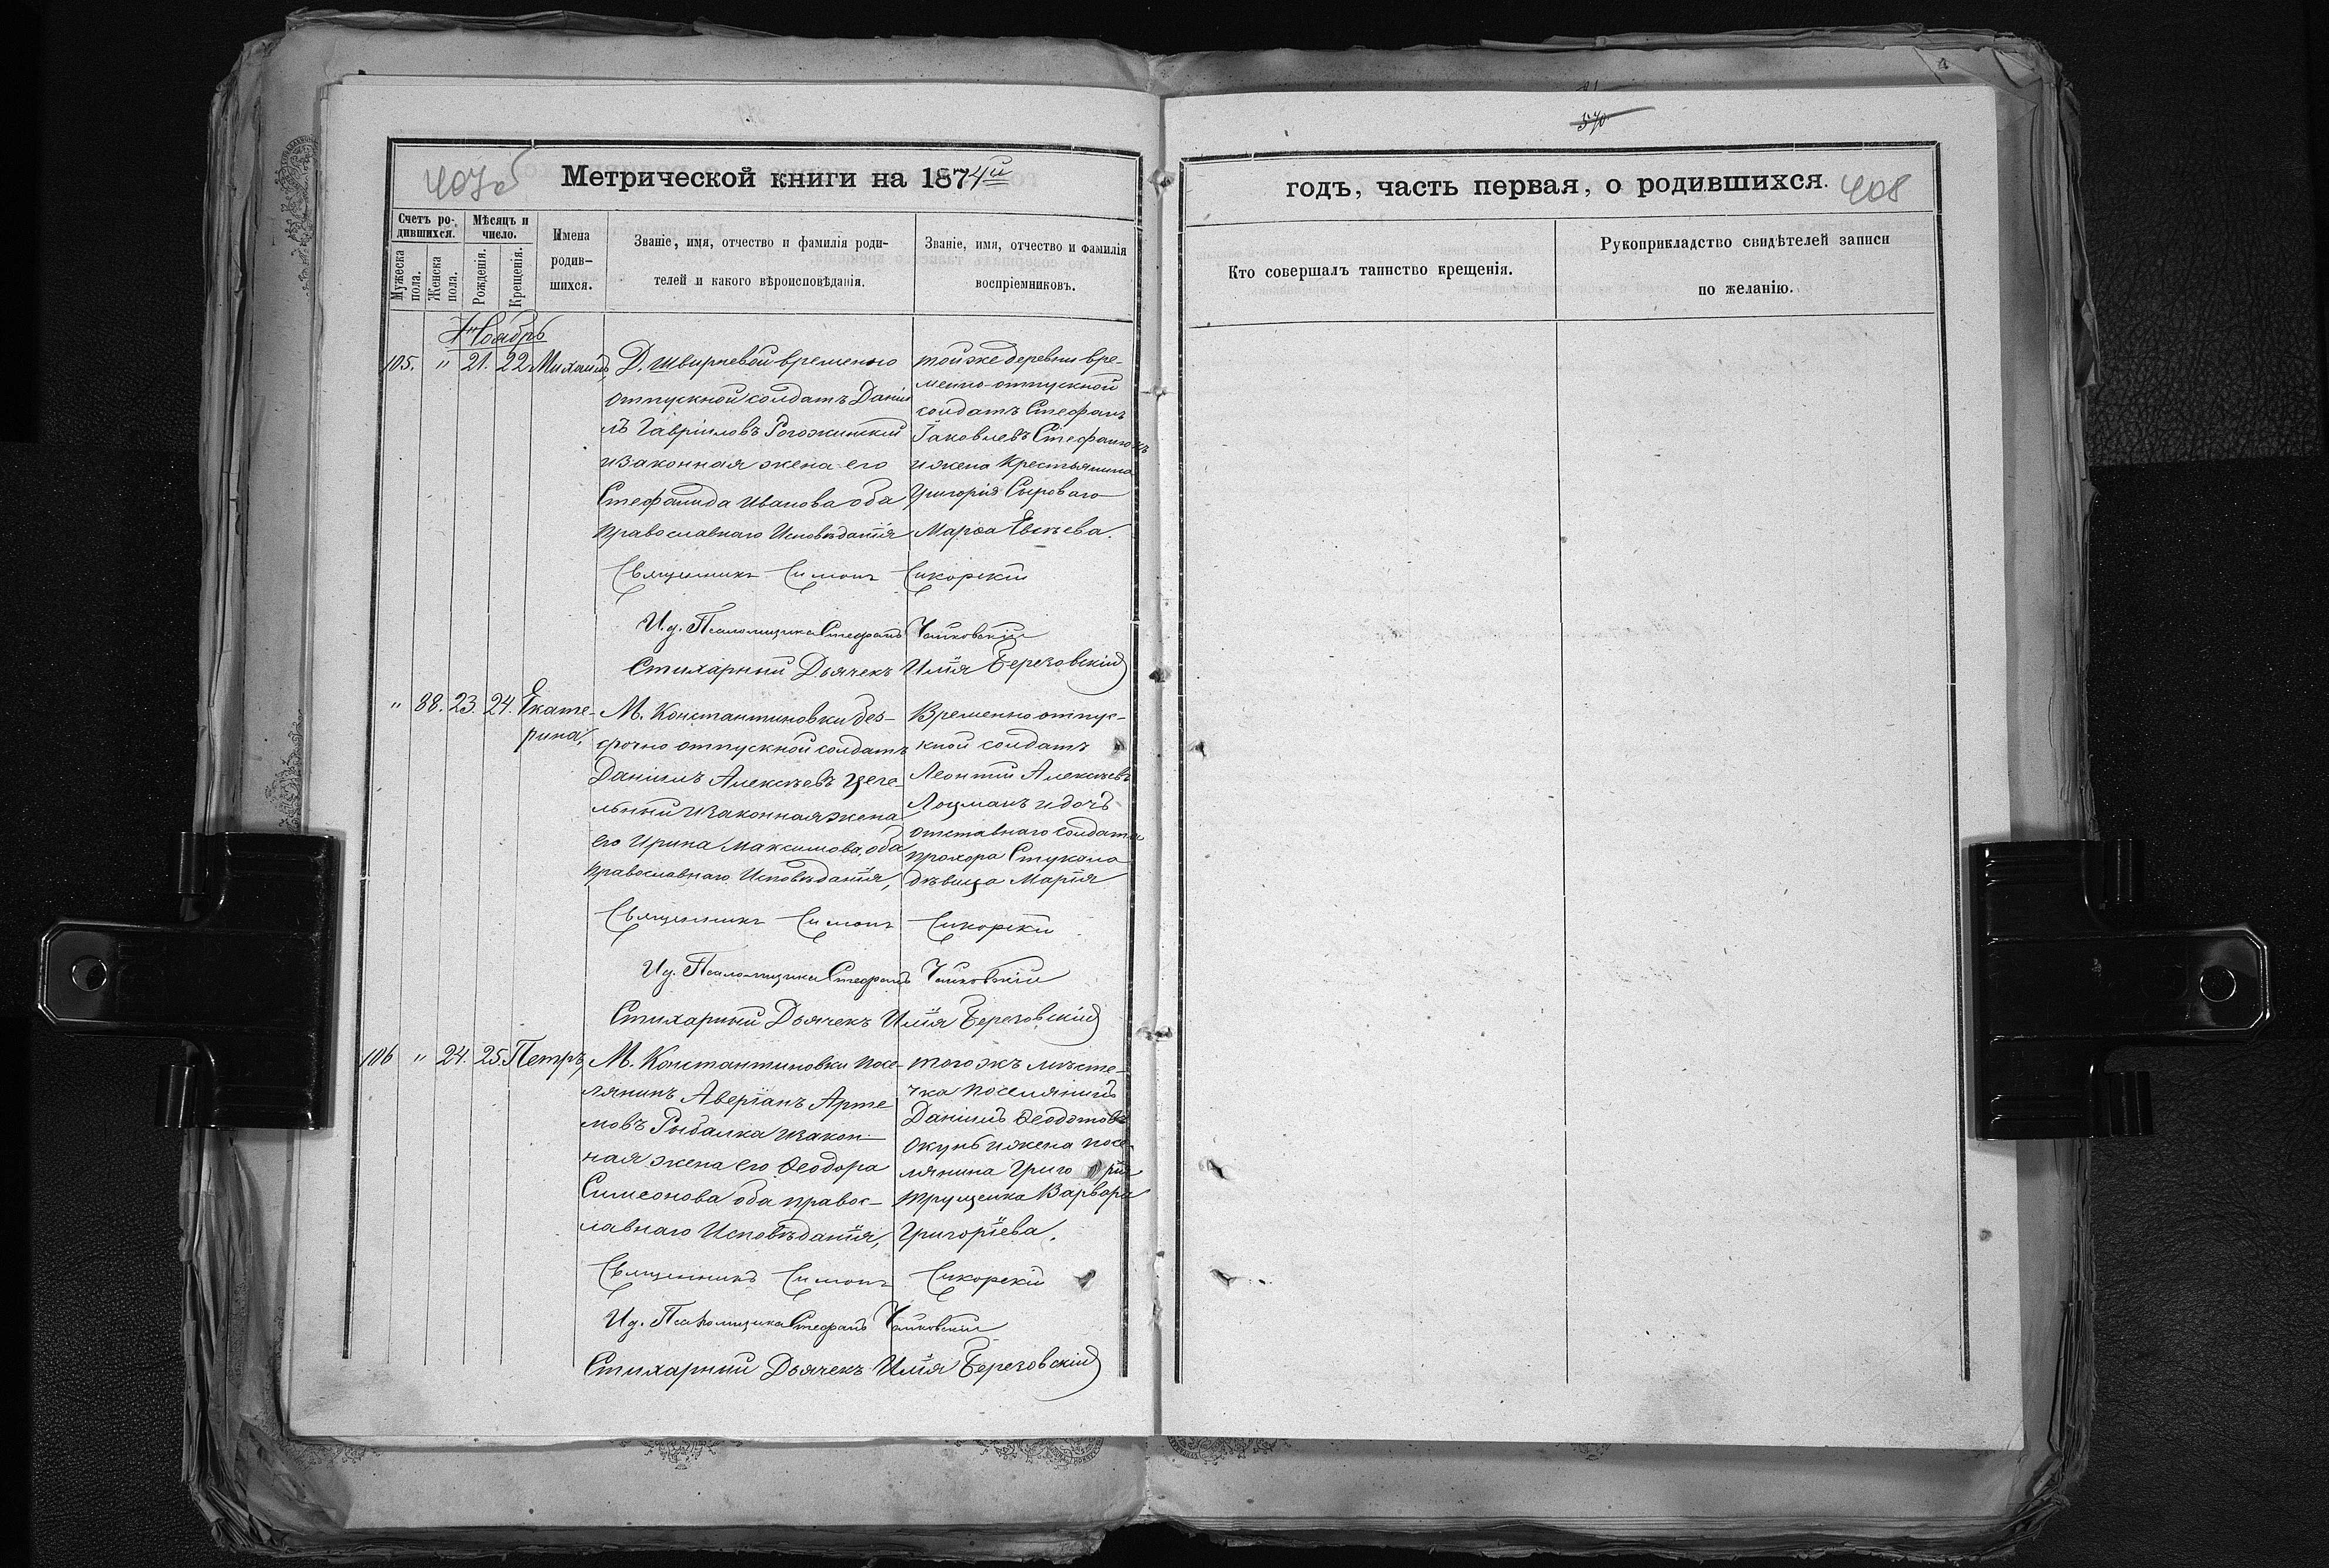 407об
Метрической книги на 1874й
Счетъ ро-
дившихся.
Мужеска
пола.
Женска
пола.
Мѣсяцъ и
число.
Рожденія.
Крещенія.
Имена
родив-
шихся.
Званіе, имя, отчество и фамилія роди-
телей и какого вѣроисповѣданія.
Званіе, имя, отчество и фамилія
воспріемниковъ.
Ноябрь
105. " 21. 22. Михаилъ,
Д. Швирневой временно
отпускной солдатъ Даніи
лъ Гавріиловъ Рогожинскій
и законная жена его
Стефанида Иванова оба
православнаго Исповѣданія
той же деревни вре-
менно-отпускной
солдатъ Стефанъ
Іаковлевъ Стефанюкъ
и жена Крестьянина
Григорія Сыроваго
Марѳа Евсѣева.
Священникъ Симонъ Сикорскій
И.д. Псаломщика Стефанъ Чайковскій
Стихарный Дьячекъ Илія Березовскій
" 88. 23. 24. Екате-
рина,
М. Константиновки без-
срочно отпускной солдатъ
Даніилъ Алексѣевъ Цеге-
льный и законная жена
его Ирина Максимова, оба
православнаго Исповѣданія,
Временно отпус-
кной солдатъ
Леонтій Алексѣевъ
Лоцманъ и дочь
отставнаго солдата
прохора Стукала
дѣвица Марія
Священникъ Симонъ Сикорскій
И.д. Псаломщика Стефанъ Чайковскій
Стихарный Дьячекъ Илія Березовскій
106 " 24. 25. Петръ,
М. Константиновки посе-
лянинъ Аверіанъ Арте
мовъ Рыбалка и закон-
ная жена его Ѳеодора
Симеонова оба правос-
лавнаго Исповѣданія,
того жъ мѣсте-
чка поселянинъ
Даніилъ Ѳеодотовъ
Окунь и жена посе-
лянина Григорія
Трущенка Варвара
Григоріева.
Священникъ Симонъ Сикорскій
И.д. Псаломщика Стефанъ Чайковскій
Стихарный Дьячекъ Илія Березовскій
570
годъ, часть первая, о родившихся.
408
Кто совершалъ таинство крещенія.
Рукоприкладство свидѣтелей записи
по желанію.